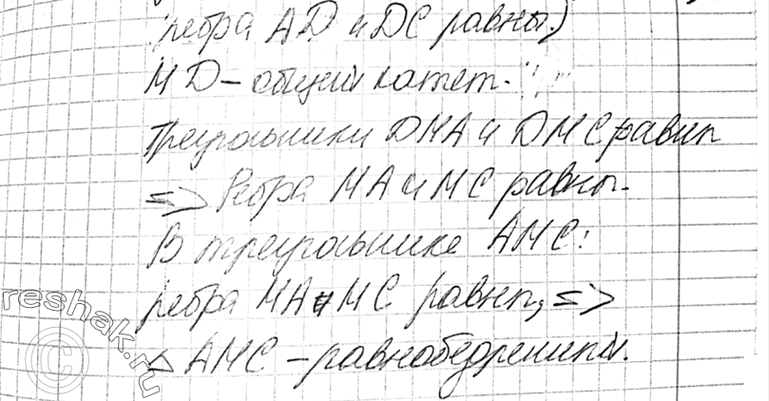 ребра AD и DC равны)
MD – общий катет.
Треугольники DMA и DMC равны
=> Ребра MA и MC равны.
В треугольнике AMC:
ребра MA и MC равны, =>
△ AMC – равнобедренный.
reshak.ru